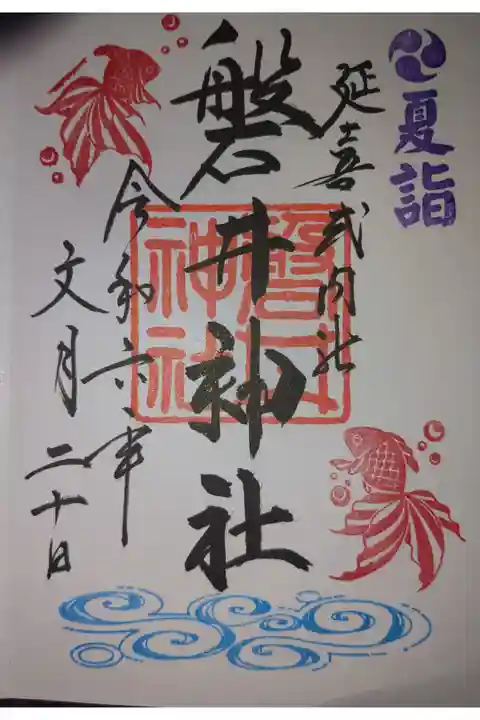 夏詣
延喜式内社
磐井神社
磐井神社
令和六年
文月二十日